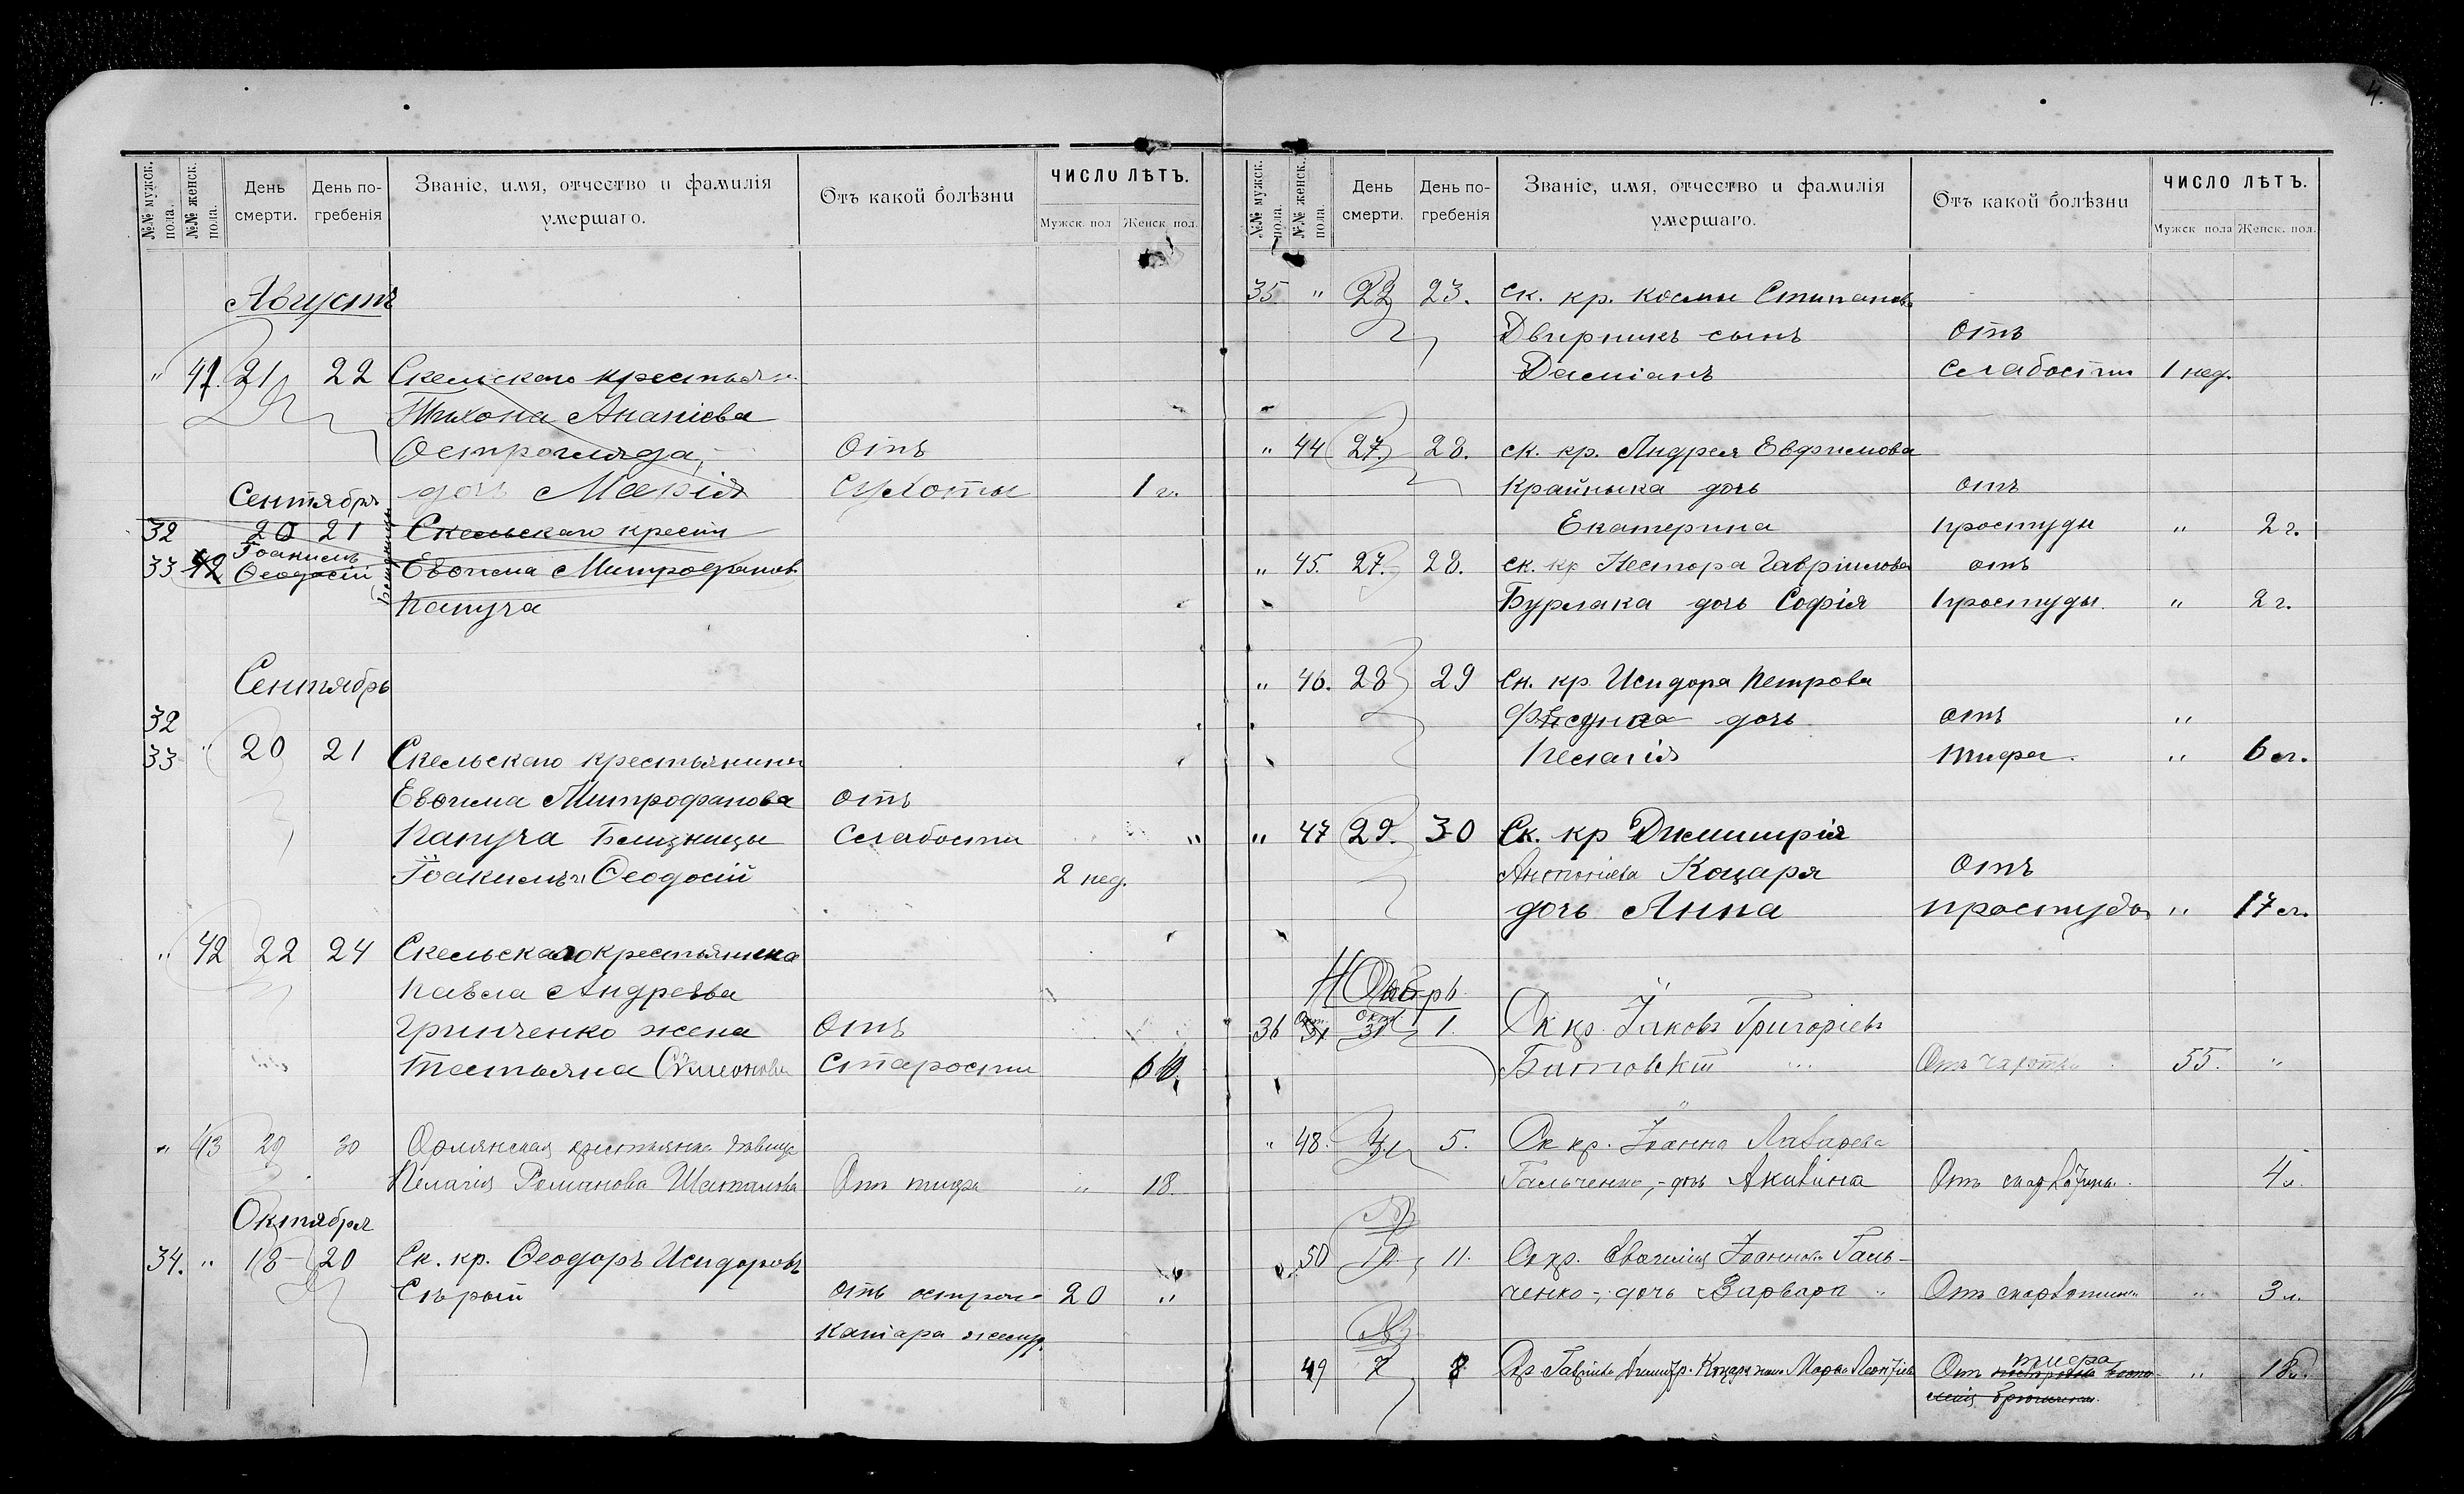 4.
№№ мужск. пола. №№ женск. пола. День смерти. День по-гребенія Званіе, имя, отчество и фамилія умершаго. Отъ какой болѣзни ЧИСЛО ЛѢТЪ. Мужск. пол Женск. пол.
Августъ
" 41. 21 22 Скельскаго крестьян.
Тихона Ананіева
Остроглида, отъ
дочь Марія сухоты 1 г.
Сентября
32 20 21 Скельскаго крест
33 42 Іоакимъ Ѳеодосій близницы Евѳима Митрофанов.
Капуча
Сентябрь
32
33 " 20 21 Скельскаго крестьянина
Евѳима Митрофанова отъ
Капуча близницы слабости "
Іоакимъ и Ѳеодосій 2 нед.
" 42 22 24 Скельскаго крестьянина
Павла Андреева
Гринченко жена отъ
Татьяна Симеонова старости 60.
" 43 29 30 крестьянка дѣвица
Пелагія Романова Шаталова Отъ тифа " 18.
Октября
34. " 18 20 Ск. кр. Ѳеодоръ Исидоровъ
Сѣрый отъ остраго 20 "
катара желуд.
№№ мужск. пола. №№ женск. пола. День смерти. День по-гребенія Званіе, имя, отчество и фамилія умершаго. Отъ какой болѣзни ЧИСЛО ЛѢТЪ. Мужск. пола Женск. пол.
35 " 22 23. Ск. кр. Космы Стипанова
Двирникъ сынъ отъ
Даміанъ слабости 1 нед.
" 44 27. 28. ск. кр. Андрея Евфимова
Крайныка дочь отъ
Екатерина простуды " 2 г.
" 45. 27. 28. ск. кр Нестора Гавріилова отъ
Бурлака дочь Софія простуды. " 2 г.
" 46. 28 29 Ск. кр Исидора Петрова
Фисуна дочь отъ "
Пелагія тифа. " 6 л.
" 47 29. 30 Ск. кр Димитрія
Антоніева Коцаря отъ
дочь Анна простуды " 17 л.
Ноябрь
36 Окт. 31 1. Ск кр. Іаковъ Григоріевъ
Битовскій Отъ чахотки 55. "
" 48. 3. 5. Ск кр. Іоанна Лазарева
Гальченко, - дочь Акилина Отъ скарлатины. 4 л.
50 10. 11. Ск кр. Евѳимія Іоаннова Галь-
ченко -, дочь Варвара Отъ скарлатины " 3 л.
49 7 8 Кр Гавріила Димитр. Коцаря жена Марѳа Леонтіева Отъ тифа " 18 л.